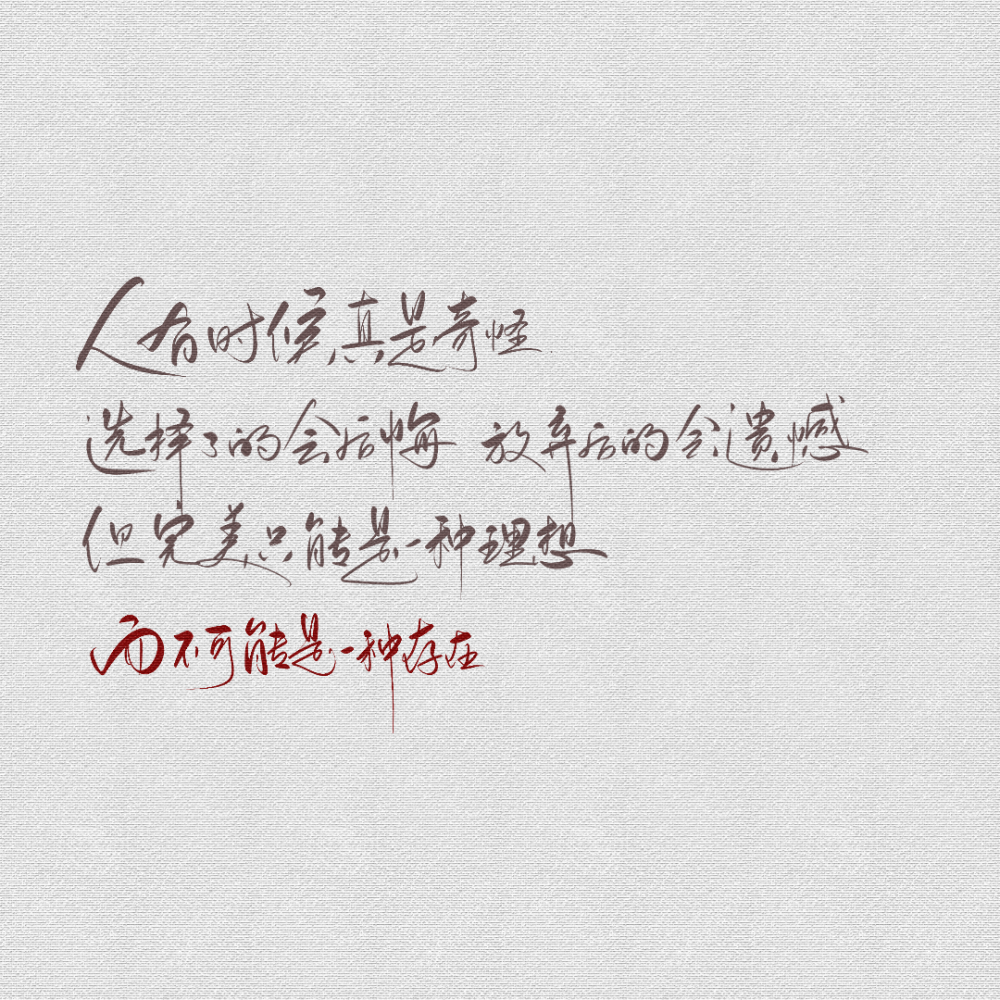 人有时候真是奇怪
选择了的会后悔 放弃后的会遗憾
但完美只能是一种理想
而不可能是一种存在